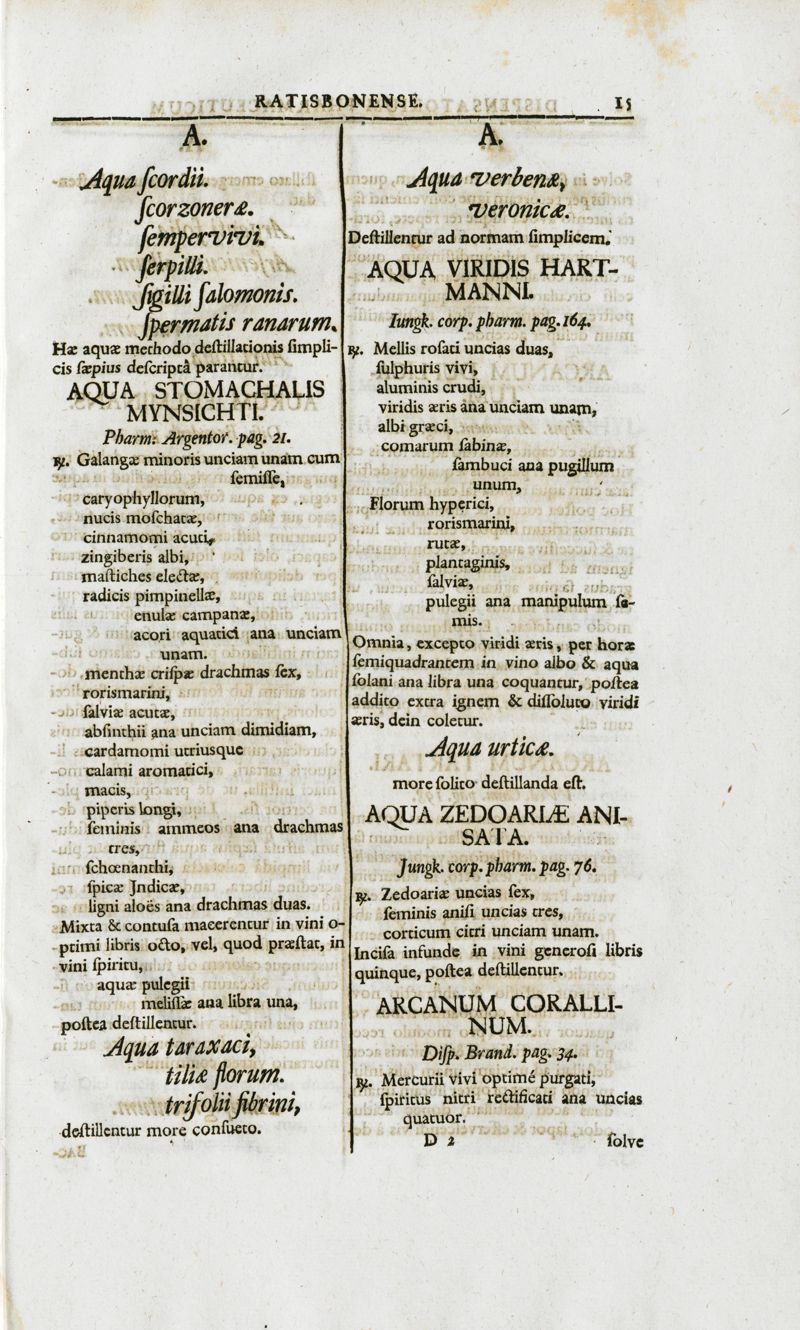 RATISBONENSE. 15
A.
Aqua ſcordii.
ſcorzoneræ.
ſempervivi.
ſerpilli.
ſigilli ſalomonis.
ſpermatis ranarum.
Hæ aquæ methodo deſtillationis ſimpli-
cis ſæpius deſcriptâ parantur.
AQUA STOMACHALIS
MYNSICHTI.
Pharm. Argentor. pag. 21.
℞. Galangæ minoris unciam unam cum
ſemiſſe,
caryophyllorum,
nucis moſchatæ,
cinnamomi acuti,
zingiberis albi,
maſtiches electæ,
radicis pimpinellæ,
enulæ campanæ,
acori aquatici ana unciam
unam.
menthæ criſpæ drachmas ſex,
rorismarini,
ſalviæ acutæ,
abſinthii ana unciam dimidiam,
cardamomi utriusque
calami aromatici,
macis,
piperis longi,
ſeminis ammeos ana drachmas
tres,
ſchœnanthi,
ſpicæ Jndicæ,
ligni aloës ana drachmas duas.
Mixta & contuſa macerentur in vini o-
ptimi libris octo, vel, quod præſtat, in
vini ſpiritu,
aquæ pulegii
meliſſæ ana libra una,
poſtea deſtillentur.
Aqua taraxaci,
tiliæ florum.
trifolii fibrini,
deſtillentur more conſueto.
A.
Aqua verbenæ,
veronicæ.
Deſtillentur ad normam ſimplicem.
AQUA VIRIDIS HART-
MANNI.
Iungk. corp. pharm. pag. 164.
℞. Mellis roſati uncias duas,
ſulphuris vivi,
aluminis crudi,
viridis æris ana unciam unam,
albi græci,
comarum ſabinæ,
ſambuci ana pugillum
unum,
Florum hyperici,
rorismarini,
rutæ,
plantaginis,
ſalviæ,
pulegii ana manipulum ſe-
mis.
Omnia, excepto viridi æris, per horæ
ſemiquadrantem in vino albo & aqua
ſolani ana libra una coquantur, poſtea
addito extra ignem & diſſoluto viridi
æris, dein coletur.
Aqua urticæ.
more ſolito deſtillanda eſt.
AQUA ZEDOARIÆ ANI-
SATA.
Jungk. corp. pharm. pag. 76.
℞. Zedoariæ uncias ſex,
ſeminis aniſi uncias tres,
corticum citri unciam unam.
Inciſa infunde in vini generoſi libris
quinque, poſtea deſtillentur.
ARCANUM CORALLI-
NUM.
Diſp. Brand. pag. 34.
℞. Mercurii vivi optimé purgati,
ſpiritus nitri rectificati ana uncias
quatuor.
D 2 ſolve